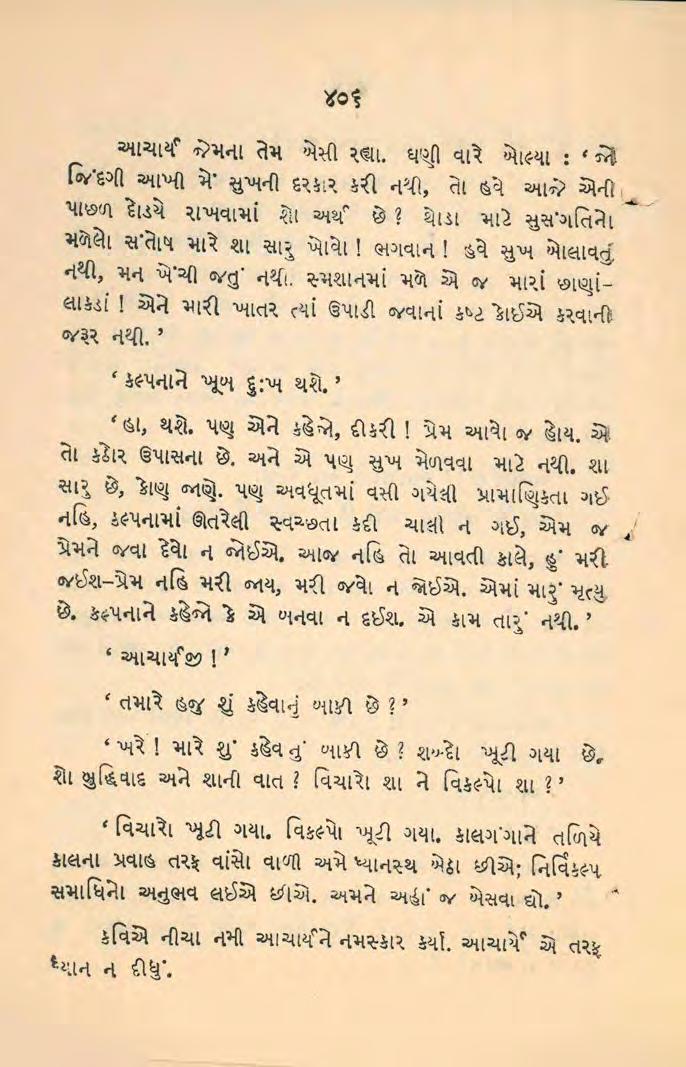 ૪૦૬
આચાર્ય જેમના તેમ બેસી રહ્યા. ઘણી વારે બોલ્યા : ‘ જો
જિંદગી આખી મેં સુખની દરકાર કરી નથી, તો હવે આજે એની
પાછળ દોડયે રાખવામાં શો અર્થ છે ? થોડા માટે સુસંગતિનો
મળેલો સંતોષ મારે શા સારુ ખોવો ! ભગવાન ! હવે સુખ બોલાવતું
નથી, મન ખેંચી જતું નથી. સ્મશાનમાં મળે એ જ મારાં છાણાં–
લાકડાં ! એને મારી ખાતર ત્યાં ઉપાડી જવાનાં કષ્ટ કોઈએ કરવાની
જરૂર નથી. ’
‘ કલ્પનાને ખૂબ દુ:ખ થશે. ’
‘ હા, થશે. પણ એને કહેજો, દીકરી ! પ્રેમ આવો જ હોય. એ
તો કઠોર ઉપાસના છે. અને એ પણ સુખ મેળવવા માટે નથી. શા
સારુ છે, કોણ જાણે. પણ અવધૂતમાં વસી ગયેલી પ્રામાણિકતા ગઈ
નહિ, કલ્પનામાં ઊતરેલી સ્વચ્છતા કદી ચાલી ન ગઈ, એમ જ
પ્રેમને જવા દેવો ન જોઈએ. આજ નહિ તો આવતી કાલે, હું મરી
જઈશ–પ્રેમ નહિ મરી જાય, મરી જવો ન જોઈએ. એમાં મારું મૃત્યુ
છે. કલ્પનાને કહેજો કે એ બનવા ન દઈશ. એ કામ તારું નથી. ’
‘ આચાર્યજી ! ’
‘ તમારે હજુ શું કહેવાનું બાકી છે ? ’
‘ ખરે ! મારે શું કહેવાનું બાકી છે ? શબ્દો ખૂટી ગયા છે.
શો બુદ્ધિવાદ અને શાની વાત ? વિચારો શા ને વિકલ્પો શા ? ’
‘ વિચારો ખૂટી ગયા. વિકલ્પો ખૂટી ગયા. કાલગંગાને તળિયે
કાલના પ્રવાહ તરફ વાંસો વાળી અમે ધ્યાનસ્થ બેઠા છીએ; નિર્વિકલ્પ
સમાધિનો અનુભવ લઈએ છીએ. અમને અહીં જ બેસવા દ્યો. ’
કવિએ નીચા નમી આચાર્યને નમસ્કાર કર્યા. આચાર્યે એ તરફ
ધ્યાન ન દીધું.